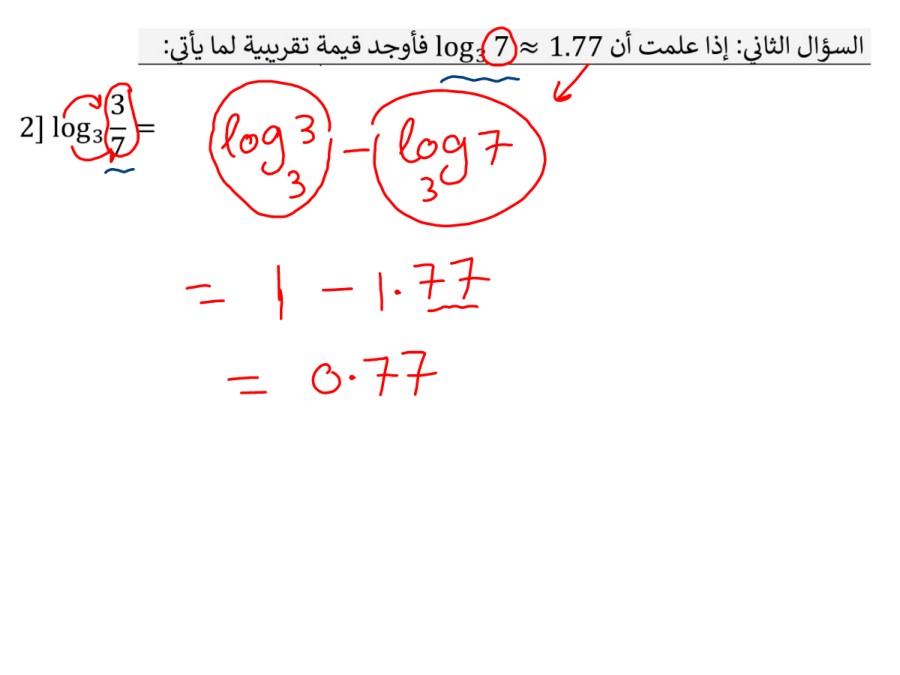 السؤال الثاني: إذا علمت أن log₃ 7 ≈ 1.77 فأوجد قيمة تقريبية لما يأتي:
2] log₃ 3/7 = log₃ 3 − log₃ 7
= 1 − 1.77
= 0.77